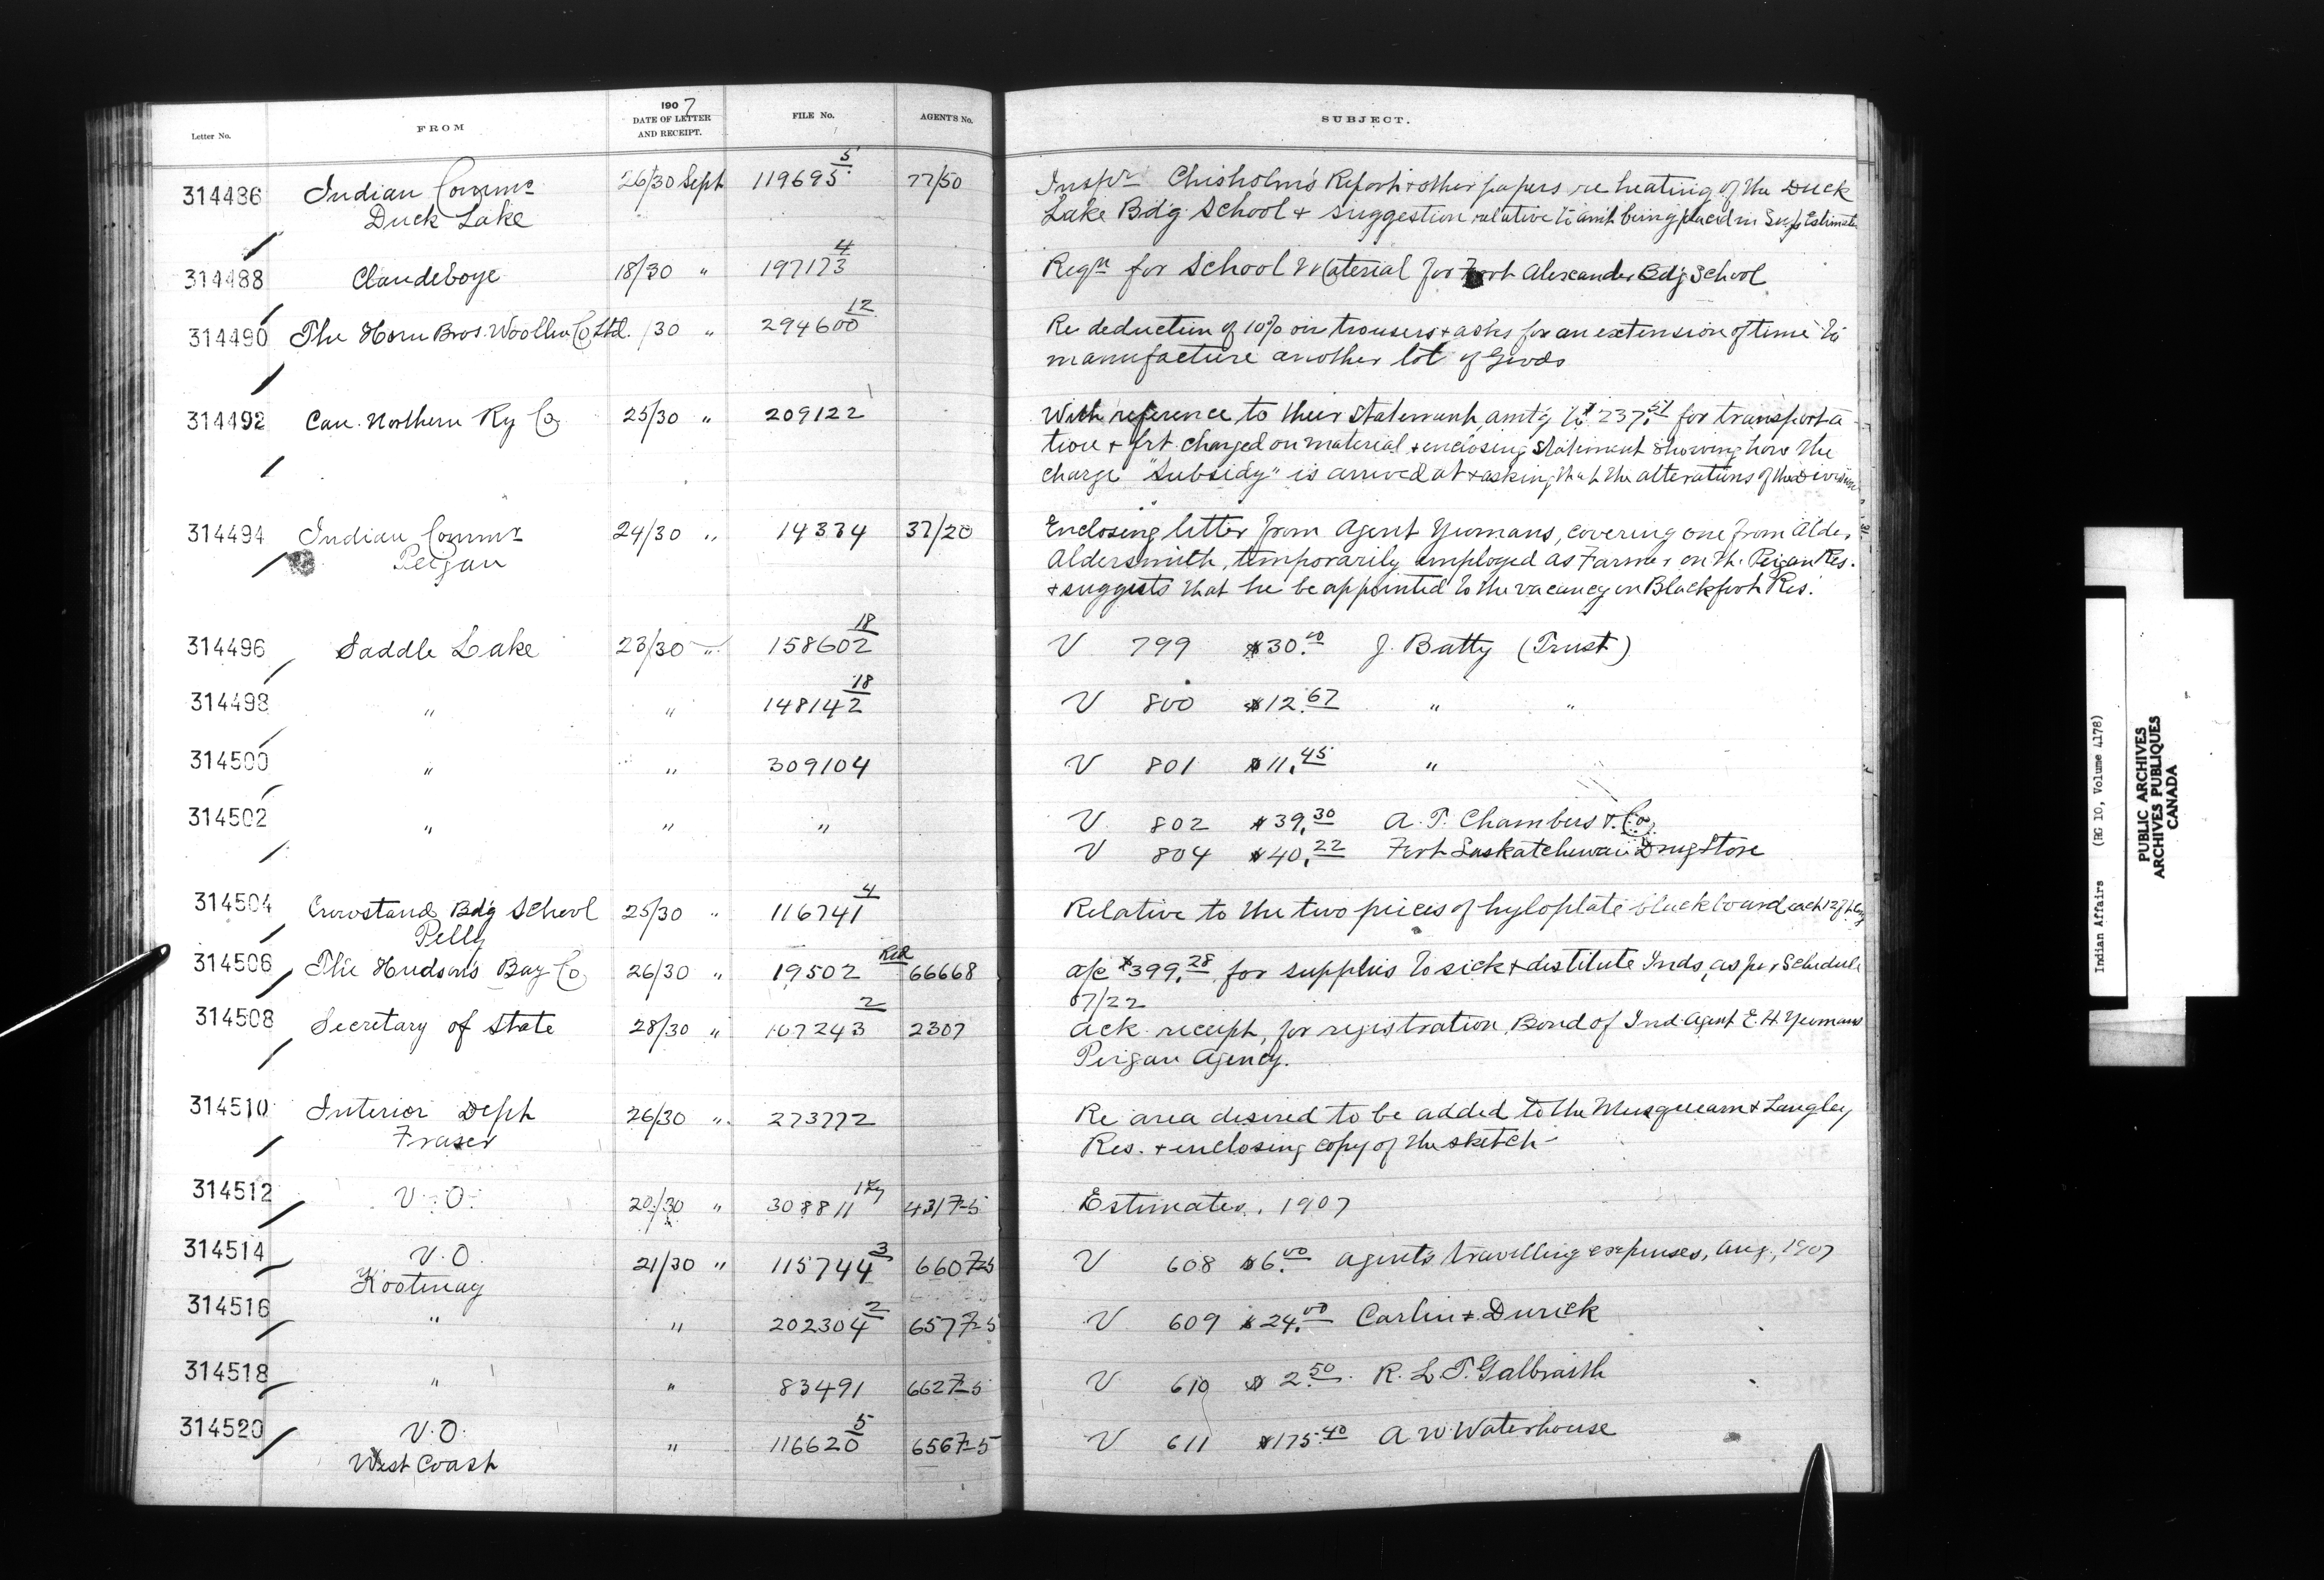 1907
Letter No. FROM DATE OF LETTER AND RECEIPT. FILE No. AGENT'S No. SUBJECT.
314486 Indian Commr 26/30 Sept 119695 5 77/50 Inspr Chisholm's Report + other papers re heating of the Duck
Duck Lake Lake Bdg School + suggestion relative to amt being placed in Sup Estimate
314488 Clandeboye 18/30 " 197173 4 Reqn for School Material for Fort Alexander Bdg School
314490 The Horn Bros. Woollen Co Ltd. /30 " 294600 12 Re deduction of 10% on trousers + asks for an extension of time to
manufacture another lot of Goods
314492 Can. Northern Ry Co 25/30 " 209122 1 With reference to their statement, amtg to $237.51 for transporta-
tion + frt. charged on material + enclosing statement showing how the
charge "Subsidy" is arrived at + asking that the alterations of the Divisions
314494 Indian Commr 24/30 " 14334 37/20 Enclosing letter from Agent Yeomans, covering one from Alde,
Peigan Aldersmith, temporarily employed as Farmer on the Peigan Res.
+ suggests that he be appointed to the vacancy on Blackfoot Res.
314496 Saddle Lake 23/30 " 158602 18 V 799 $30.00 J. Batty (Trust)
314498 " " 148142 18 V 800 $12.67 " "
314500 " " 309104 V 801 $11.45 "
314502 " " " V 802 $39.30 A. T. Chambers & Co.
V 804 $40.22 Fort Saskatchewan Drug Store
314504 Crowstand Bdg School 25/30 " 116741 4 Relative to the two pieces of hyloplate blackboard each 12 ft long
Pelly
314506 The Hudson's Bay Co 26/30 " 19502 Red 66668 a/c $399.28 for supplies to sick + destitute Inds, as per Schedule
07/22
314508 Secretary of State 28/30 " 107243 2 2307 Ack. receipt, for registration, Bond of Ind. Agent E. H. Yeomans
Peigan Agency.
314510 Interior Dept 26/30 " 273772 Re area desired to be added to the Musqueam + Langley
Fraser Res. + enclosing copy of the sketch -
314512 V. O. 20/30 " 308811 4317-5 Estimates, 1907
314514 V. O. 21/30 " 115744 3 6607-5 V 608 $6.00 Agents travelling expenses, Aug., 1907
Kootenay
314516 " " 202304 2 6577-5 V 609 $24.00 Carlin & Durick
314518 " " 83491 6627-5 V 610 $2.50 R. L. T. Galbraith
314520 V. O. " 116620 5 6567-5 V 611 $175.40 A W. Waterhouse
West Coast
Indian Affairs (RG 10, Volume 4178)
PUBLIC ARCHIVES
ARCHIVES PUBLIQUES
CANADA